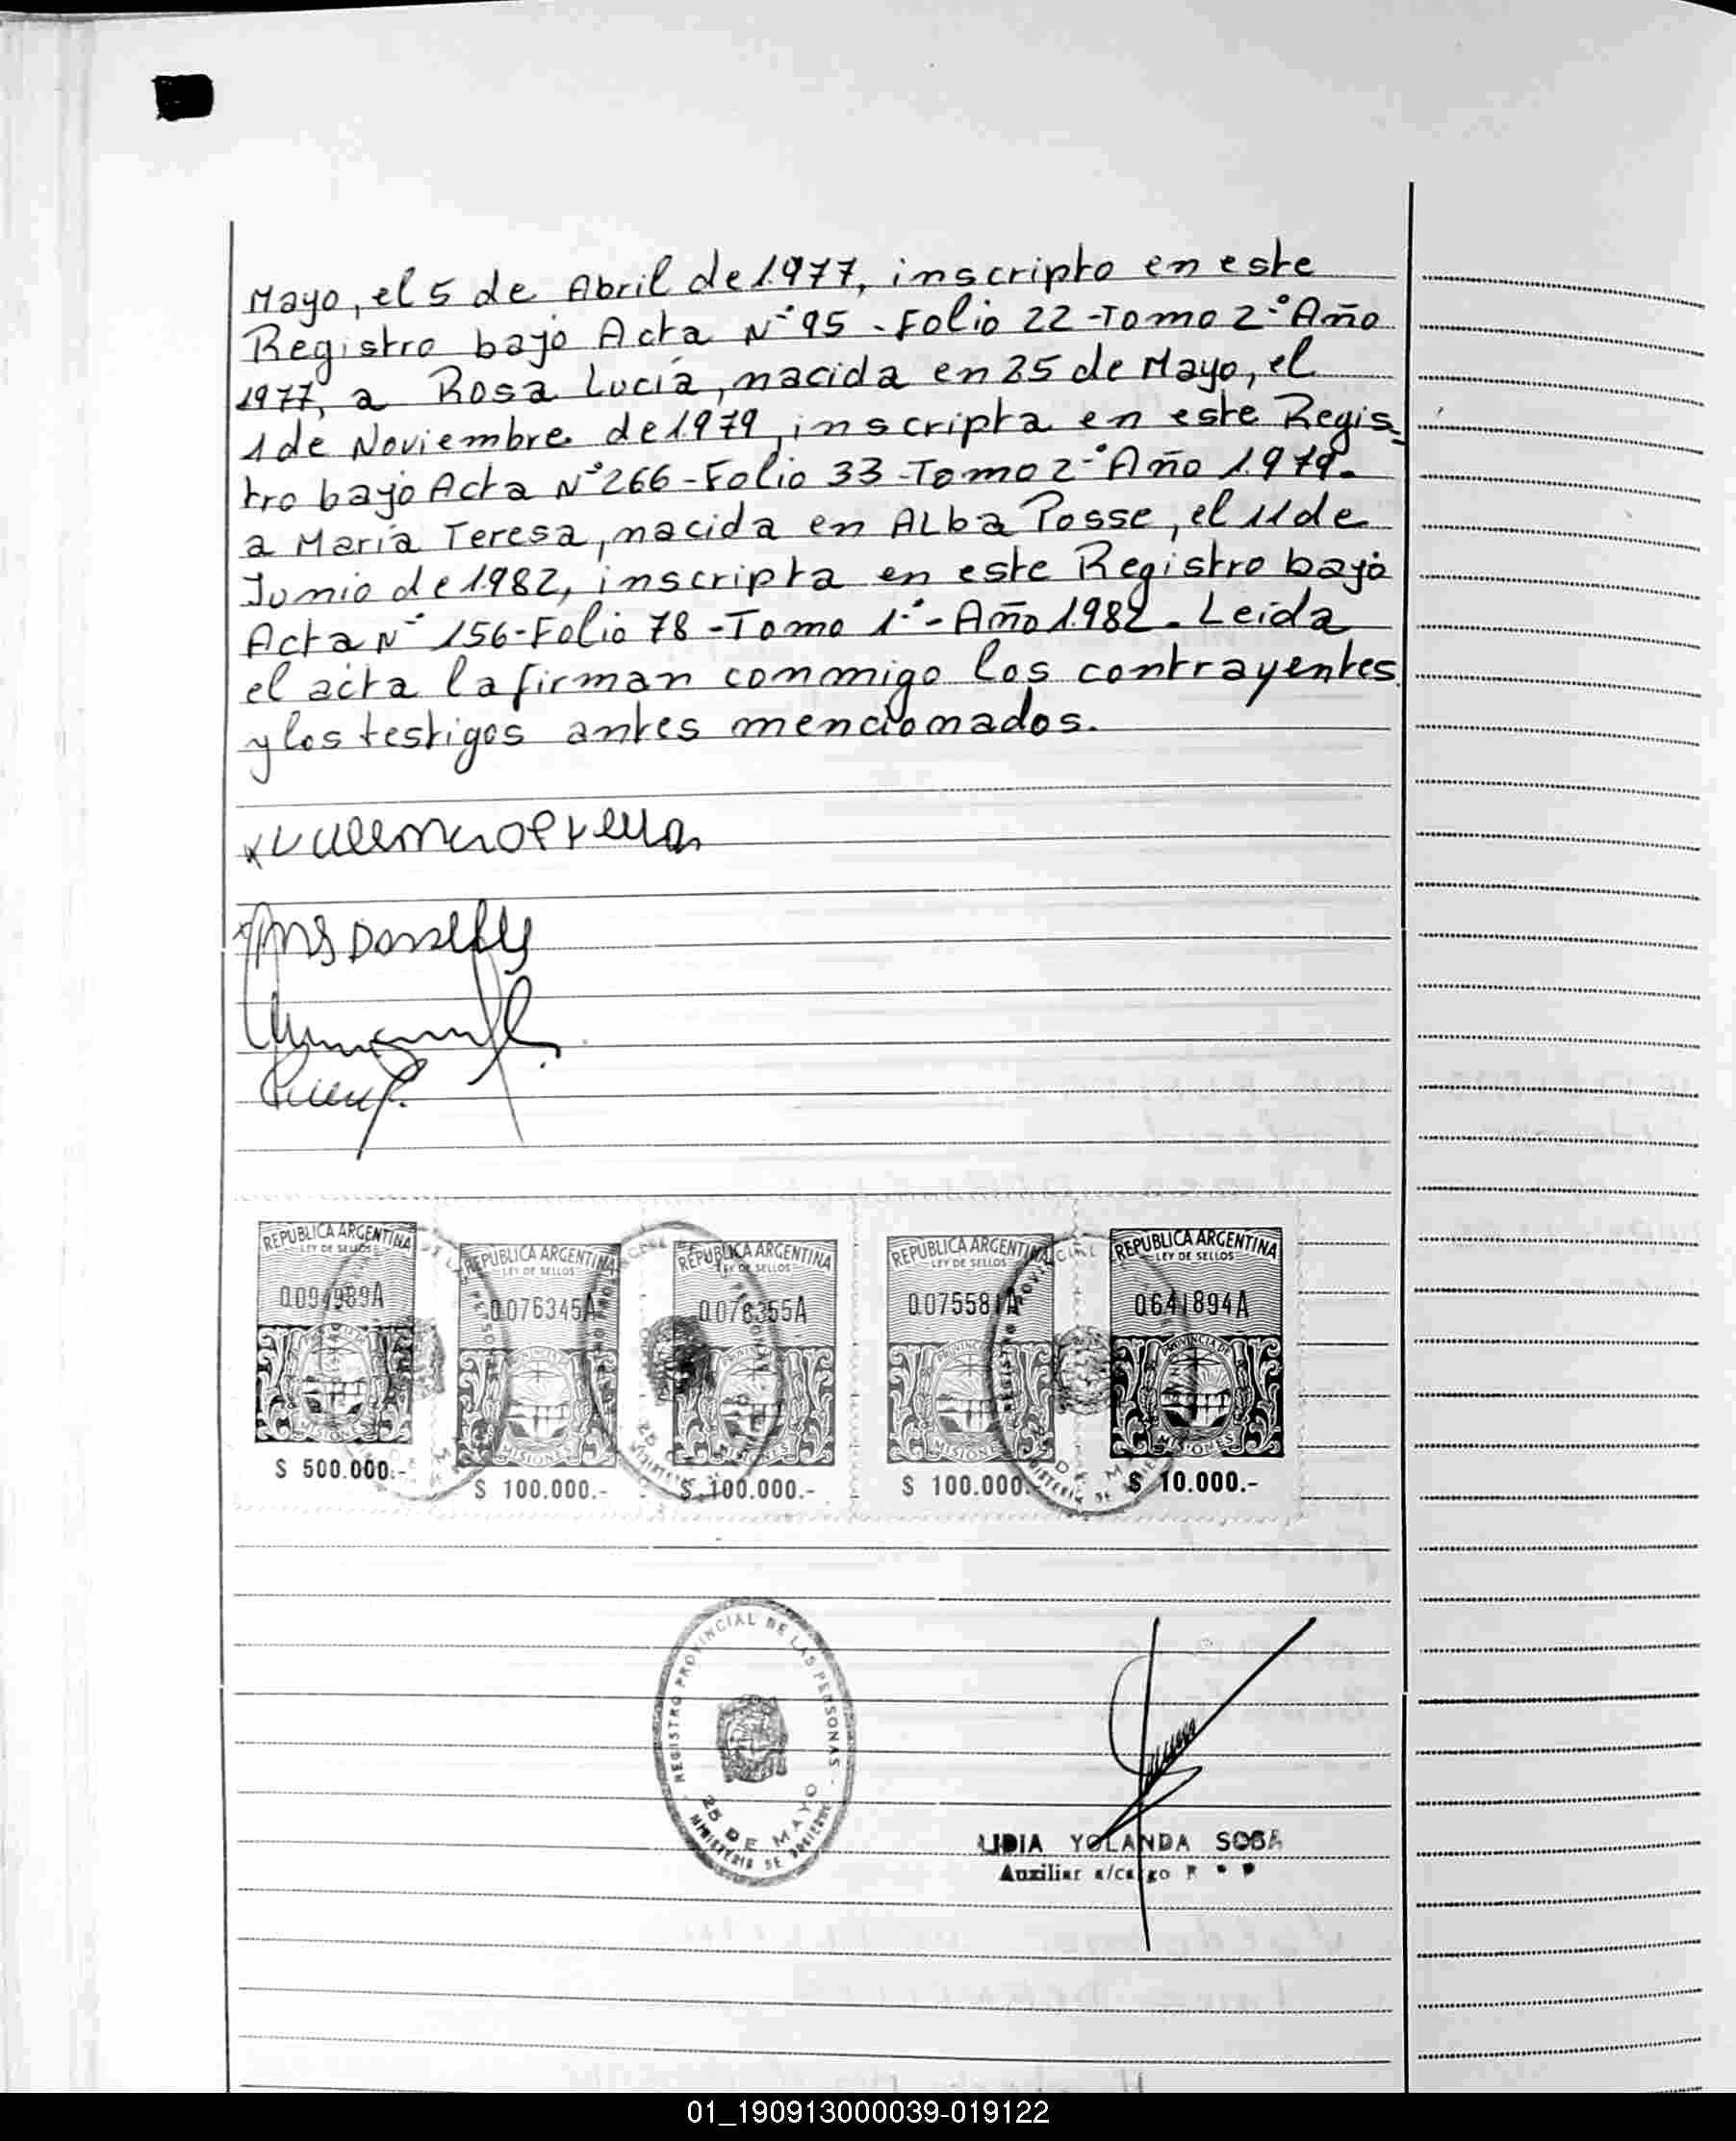 Mayo, el 5 de Abril de 1.977, inscripto en este
Registro bajo Acta N° 95 - Folio 22 - Tomo 2° Año
1977, a Rosa Lucía, nacida en 25 de Mayo, el
1 de Noviembre de 1.979, inscripta en este Regis-
tro bajo Acta N° 266 - Folio 33 - Tomo 2-° Año 1.979.
a María Teresa, nacida en Alba Posse, el 11 de
Junio de 1.982, inscripta en este Registro bajo
Acta N° 156 - Folio 78 - Tomo 1-° - Año 1.982. Leída
el acta la firman conmigo los contrayentes
y los testigos antes mencionados.
REPUBLICA ARGENTINA REPUBLICA ARGENTINA REPUBLICA ARGENTINA REPUBLICA ARGENTINA REPUBLICA ARGENTINA
LEY DE SELLOS LEY DE SELLOS LEY DE SELLOS LEY DE SELLOS LEY DE SELLOS
0076345A 0076355A 0641894A
PROVINCIA DE
MISIONES MISIONES MISIONES MISIONES MISIONES
$ 500.000.- $ 100.000.- $ 100.000.- $ 100.000.- $ 10.000.-
REGISTRO PROVINCIAL DE LAS PERSONAS
25 DE MAYO
MINISTERIO DE GOBIERNO
LIDIA YOLANDA SOSA
Auxiliar a/cargo R
01_190913000039-019122